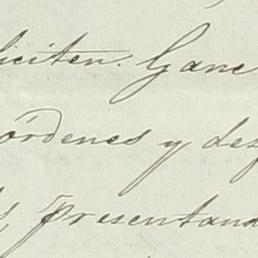 liciten. Gane
órdenes y des
presentand